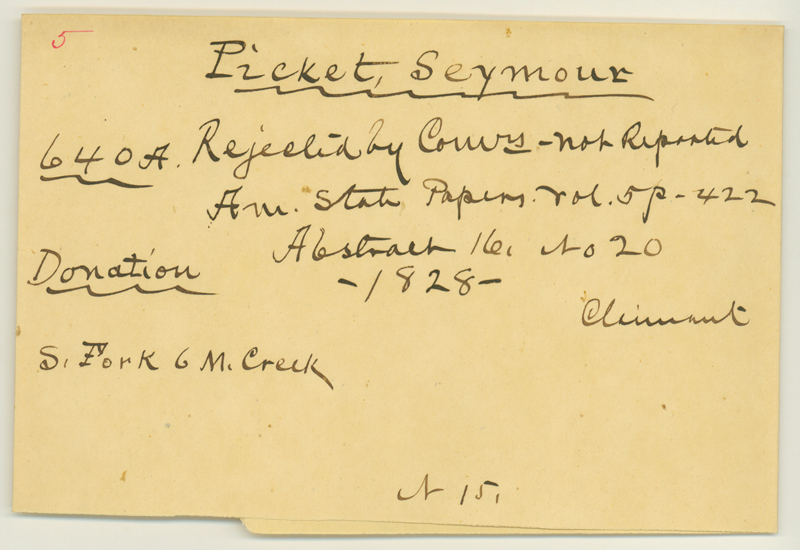 5
Picket, Seymour
640 A. Rejected by Comrs - not Reported
Am. State Papers. Vol. 5 p - 422
Abstract 16, No 20
Donation
- 1828 -
Claimant
S. Fork 6 M. Creek
N 15,